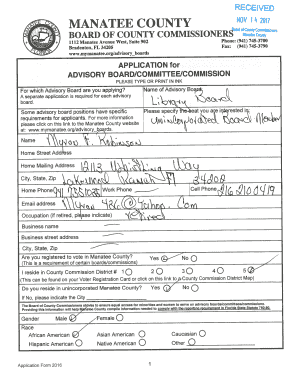 RECEIVED
NOV 14 2017
Board of County Commissioners
Manatee County
MANATEE COUNTY
BOARD OF COUNTY COMMISSIONERS
1112 Manatee Avenue West, Suite 902
Bradenton, FL 34205
www.mymanatee.org/advisory_boards
Phone: (941) 745-3700
Fax: (941) 745-3790
APPLICATION for
ADVISORY BOARD/COMMITTEE/COMMISSION
PLEASE TYPE OR PRINT IN INK
For which Advisory Board are you applying?
A separate application is required for each advisory board.
Name of Advisory Board:
Library Board
Some advisory board positions have specific requirements for applicants. For more information please click on this link to the Manatee County website at: www.mymanatee.org/advisory_boards
Please specify the seat you are interested in:
Unincorporated Board Member
Name Myron F. Robinson
Home Street Address
Home Mailing Address Way
City, State, Zip Lakewood Ranch Fl 34202
Home Phone Work Phone Cell Phone 216 210 0419
Email address
Occupation (if retired, please indicate) retired
Business name
Business street address
City, State, Zip
Are you registered to vote in Manatee County? Yes No
(This is a requirement of certain boards/commissions)
I reside in County Commission District # 1 2 3 4 5
(This can be found on your Voter Registration Card or click on this link to County Commission District Map)
Do you reside in unincorporated Manatee County? Yes No
If No, please indicate the City
Gender Male Female
Race
African American Asian American Caucasian
Hispanic American Native American Other
Application Form 2016
1